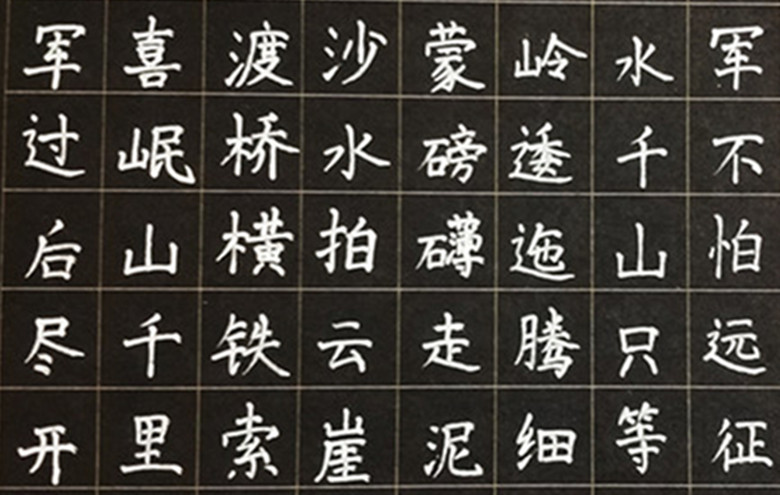 军不怕远征
水千山只等
岭逶迤腾细
蒙磅礴走泥
沙水拍云崖
渡桥横铁索
喜岷山千里
军过后尽开